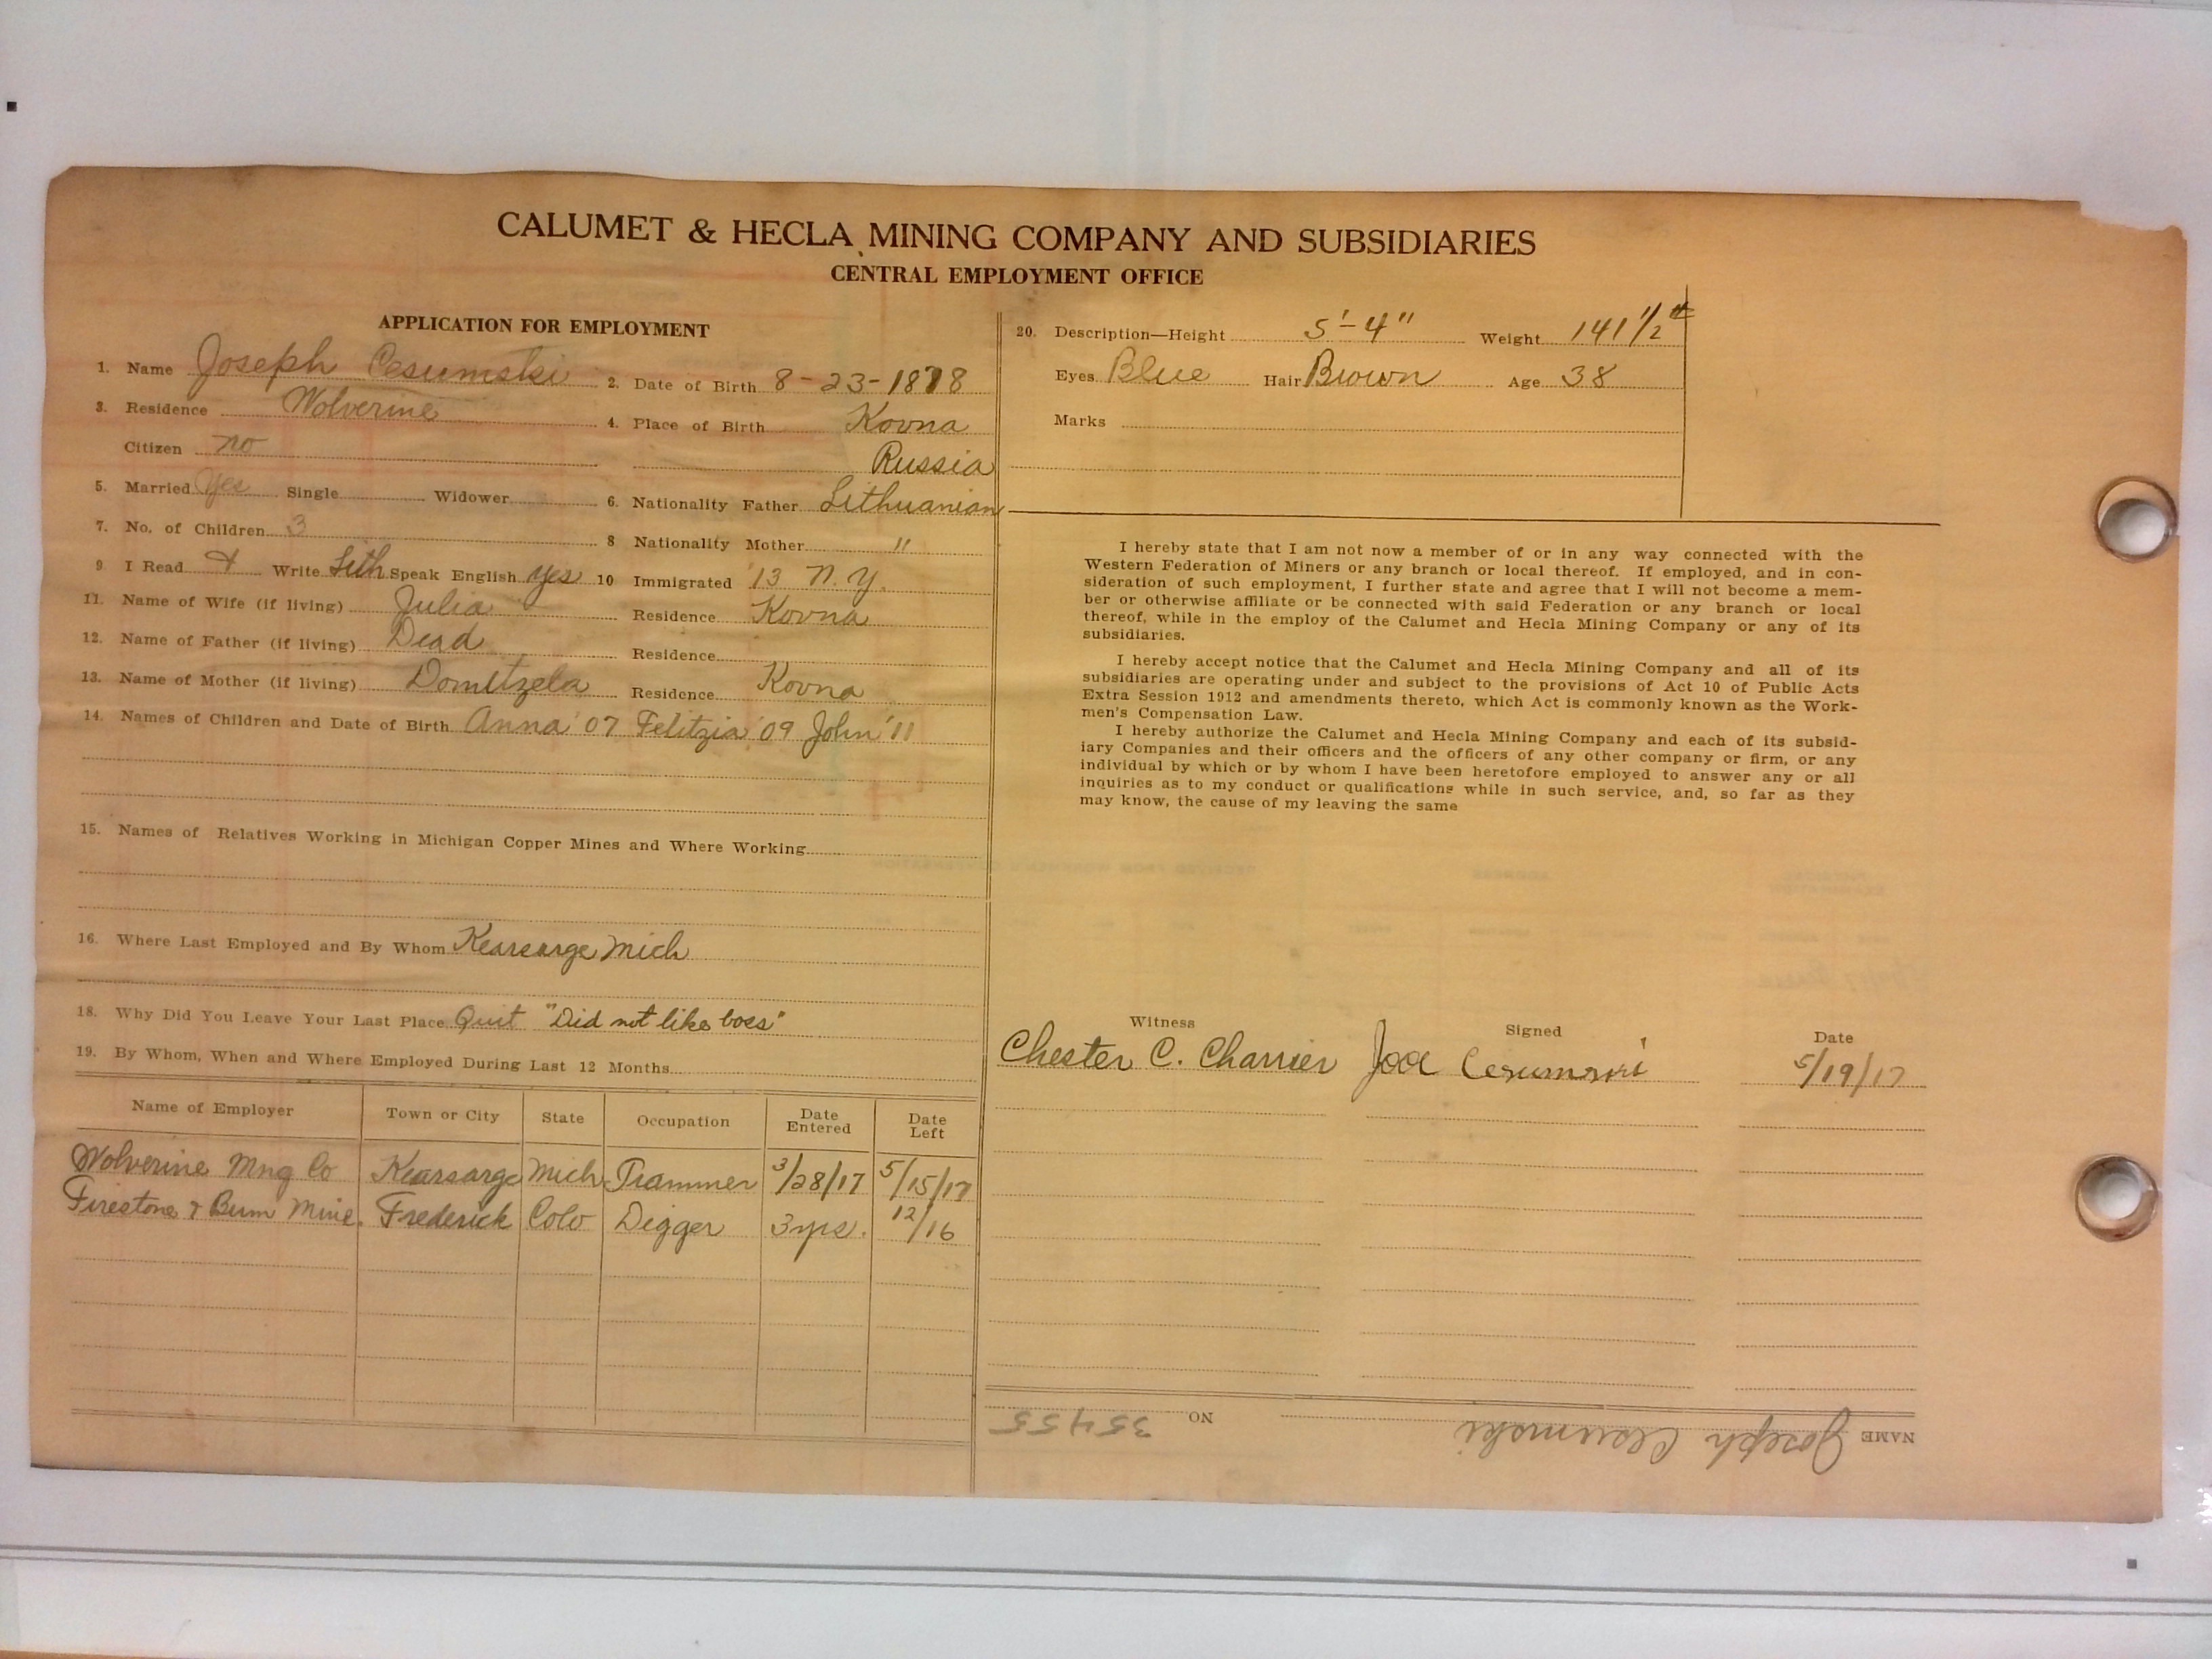 CALUMET & HECLA MINING COMPANY AND SUBSIDIARIES
CENTRAL EMPLOYMENT OFFICE
APPLICATION FOR EMPLOYMENT
1. Name Joseph Cesumski 2. Date of Birth 8-23-1878
3. Residence Wolverine 4. Place of Birth Kovna
Citizen no Russia
5. Married Yes Single Widower 6. Nationality Father Lithuanian
7. No. of Children 3 8 Nationality Mother "
9 I Read + Write Lith Speak English yes 10 Immigrated '13 N.Y.
11. Name of Wife (if living) Julia Residence Kovna
12. Name of Father (if living) Dead Residence
13. Name of Mother (if living) Domitzela Residence Kovna
14. Names of Children and Date of Birth Anna '07 Felitzia '09 John '11
15. Names of Relatives Working in Michigan Copper Mines and Where Working
16. Where Last Employed and By Whom Kearsarge Mich
18. Why Did You Leave Your Last Place Quit "Did not like boss"
19. By Whom, When and Where Employed During Last 12 Months
Name of Employer Town or City State Occupation Date Entered Date Left
Wolverine Mng Co Kearsarge Mich Trammer 3/28/17 5/15/17
Firestone & Bum Mine. Frederick Colo Digger 3 yrs. 12/16
20. Description—Height 5'-4" Weight 141 1/2 #
Eyes Blue Hair Brown Age 38
Marks
I hereby state that I am not now a member of or in any way connected with the
Western Federation of Miners or any branch or local thereof. If employed, and in con-
sideration of such employment, I further state and agree that I will not become a mem-
ber or otherwise affiliate or be connected with said Federation or any branch or local
thereof, while in the employ of the Calumet and Hecla Mining Company or any of its
subsidiaries.
I hereby accept notice that the Calumet and Hecla Mining Company and all of its
subsidiaries are operating under and subject to the provisions of Act 10 of Public Acts
Extra Session 1912 and amendments thereto, which Act is commonly known as the Work-
men's Compensation Law.
I hereby authorize the Calumet and Hecla Mining Company and each of its subsid-
iary Companies and their officers and the officers of any other company or firm, or any
individual by which or by whom I have been heretofore employed to answer any or all
inquiries as to my conduct or qualifications while in such service, and, so far as they
may know, the cause of my leaving the same
Witness Signed Date
Chester C. Charrier Joe Cesumski 5/19/17
NAME Joseph Cesumski NO 35455